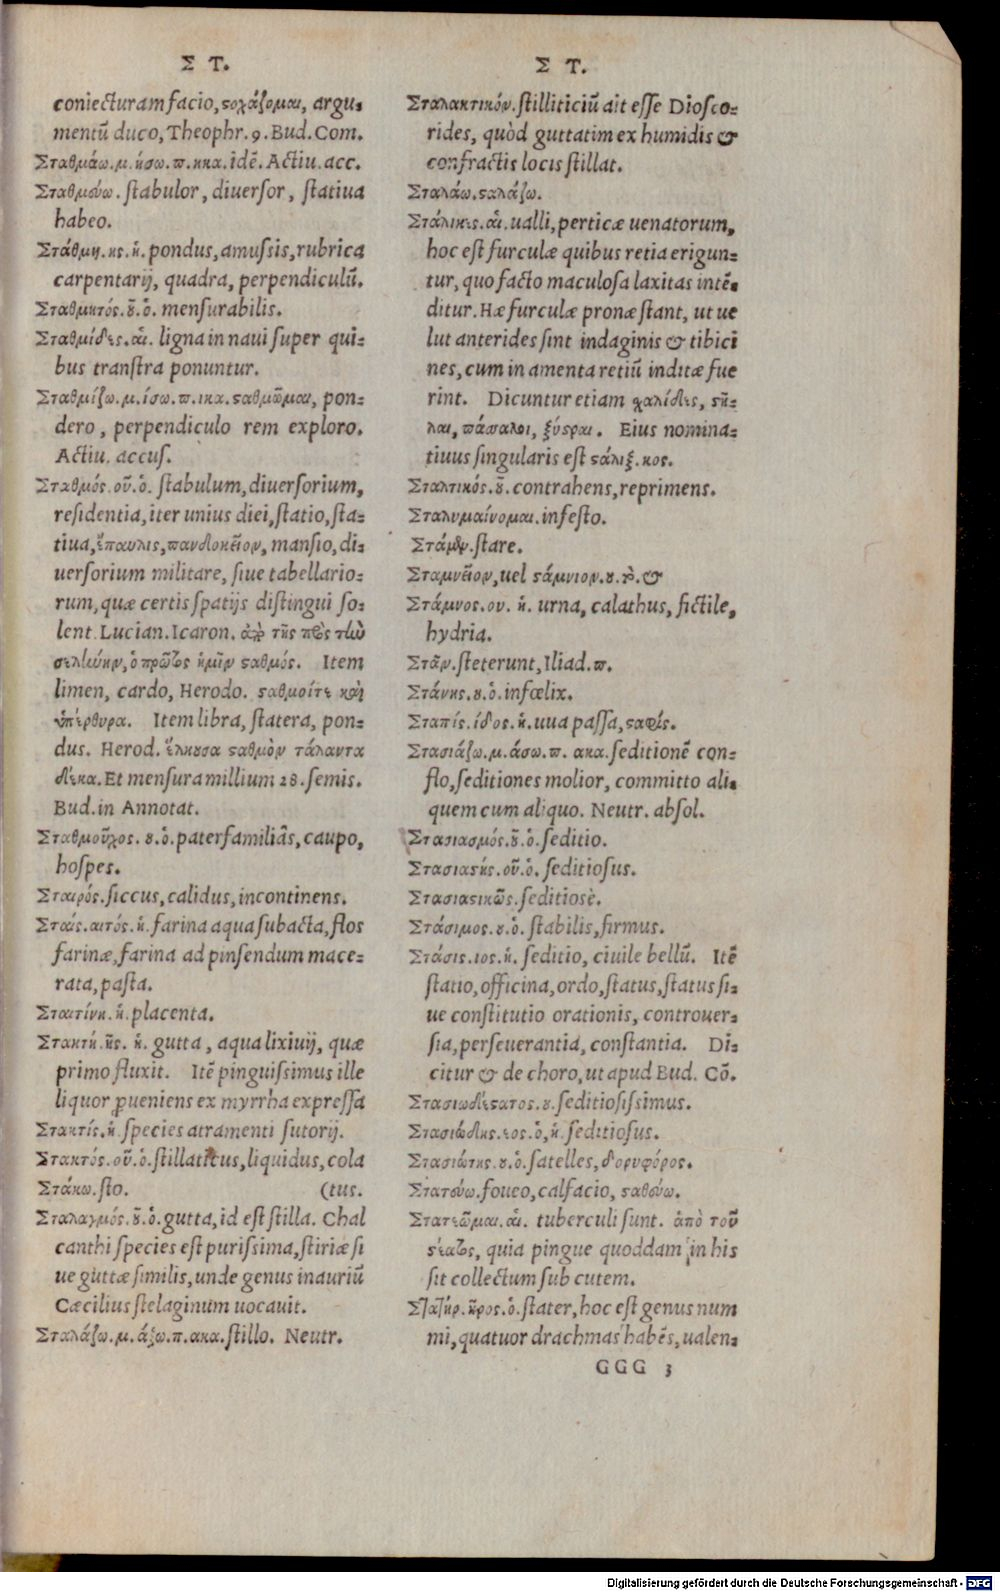 Σ Τ.
coniecturam facio, ϛοχάζομαι, argu-
mentũ duco, Theophr. 9. Bud. Com.
Σταθμάω. μ. ήσω. π. ηκα. idẽ. Actiu. acc.
Σταθμεύω. stabulor, diuersor, statiua
habeo.
Στάθμη. ης. ἡ. pondus, amussis, rubrica
carpentarij, quadra, perpendiculũ.
Σταθμητός. οῦ. ὁ. mensurabilis.
Σταθμίδες. αἱ. ligna in naui super qui-
bus transtra ponuntur.
Σταθμίζω. μ. ίσω. π. ικα. ϛαθμῶμαι, pon-
dero, perpendiculo rem exploro.
Actiu. accus.
Σταθμός. οῦ. ὁ. stabulum, diuersorium,
residentia, iter unius diei, statio, sta-
tiua, ἔπαυλις, πανδοκεῖον, mansio, di-
uersorium militare, siue tabellario-
rum, quæ certis spatijs distingui so-
lent. Lucian. Icaron. ἀπὸ τῆς πρὸς τὴν
σελήνην, ὁ πρῶτος ἡμῖν ϛαθμός. Item
limen, cardo, Herodo. ϛαθμοίτε καὶ
ὑπέρθυρα. Item libra, statera, pon-
dus. Herod. ἕλκουσα ϛαθμὸν τάλαντα
δέκα. Et mensura millium 28. semis.
Bud. in Annotat.
Σταθμοῦχος. ου. ὁ. paterfamiliâs, caupo,
hospes.
Σταιρός. siccus, calidus, incontinens.
Σταίς. αιτός. ἡ. farina aqua subacta, flos
farinæ, farina ad pinsendum mace-
rata, pasta.
Σταιτίνη. ἡ. placenta.
Στακτή. ῆς. ἡ. gutta, aqua lixiuij, quæ
primo fluxit. Itẽ pinguissimus ille
liquor ꝓueniens ex myrrha expressa
Στακτίς. ἡ. species atramenti sutorij.
Στακτός. οῦ. ὁ. stillaticus, liquidus, cola
Στάκω. sto. (tus.
Σταλαγμός. οῦ. ὁ. gutta, id est stilla. Chal
canthi species est purissima, stiriæ si
ue guttæ similis, unde genus inauriũ
Cæcilius stelaginum uocauit.
Σταλάζω. μ. άξω. π. ακα. stillo. Neutr.
Σ Τ.
Σταλακτικόν. stilliticiũ ait esse Diosco-
rides, quòd guttatim ex humidis &
confractis locis stillat.
Σταλάω. ϛαλάζω.
Στάλικες. αἱ. ualli, perticæ uenatorum,
hoc est furculæ quibus retia erigun-
tur, quo facto maculosa laxitas intẽ-
ditur. Hæ furculæ pronæ stant, ut ue
lut anterides sint indaginis & tibici
nes, cum in amenta retiũ inditæ fue
rint. Dicuntur etiam χαλίδες, ϛῆ-
λαι, πάσαλοι, ξύϛραι. Eius nomina-
tiuus singularis est ϛάλιξ. κος.
Σταλτικός. οῦ. contrahens, reprimens.
Σταλυμαίνομαι. infesto.
Στάμεν. stare.
Σταμνεῖον, uel ϛάμνιον. ου. τὸ. &
Στάμνος. ου. ἡ. urna, calathus, fictile,
hydria.
Στᾶν. steterunt, Iliad. π.
Στάνης. ου. ὁ. infœlix.
Σταπίς. ίδος. ἡ. uua passa, ϛαφίς.
Στασιάζω. μ. άσω. π. ακα. seditionẽ con-
flo, seditiones molior, committo ali-
quem cum aliquo. Neutr. absol.
Στασιασμός. οῦ. ὁ. seditio.
Στασιαϛής. οῦ. ὁ. seditiosus.
Στασιαϛικῶς. seditiosè.
Στάσιμος. ου. ὁ. stabilis, firmus.
Στάσις. ιος. ἡ. seditio, ciuile bellũ. Itẽ
statio, officina, ordo, status, status si-
ue constitutio orationis, controuer-
sia, perseuerantia, constantia. Di-
citur & de choro, ut apud Bud. Cõ.
Στασιωδέϛατος. ου. seditiosissimus.
Στασιώδης. εος. ὁ, ἡ. seditiosus.
Στασιώτης. ου. ὁ. satelles, δορυφόρος.
Στατεύω. foueo, calfacio, ϛαθεύω.
Στατεῶμαι. αἱ. tuberculi sunt. ἀπὸ τοῦ
ϛέατος, quia pingue quoddam in his
sit collectum sub cutem.
Στατήρ. ῆρος. ὁ. stater, hoc est genus num
mi, quatuor drachmas habẽs, ualen-
GGG 3
Digitalisierung gefördert durch die Deutsche Forschungsgemeinschaft - DFG